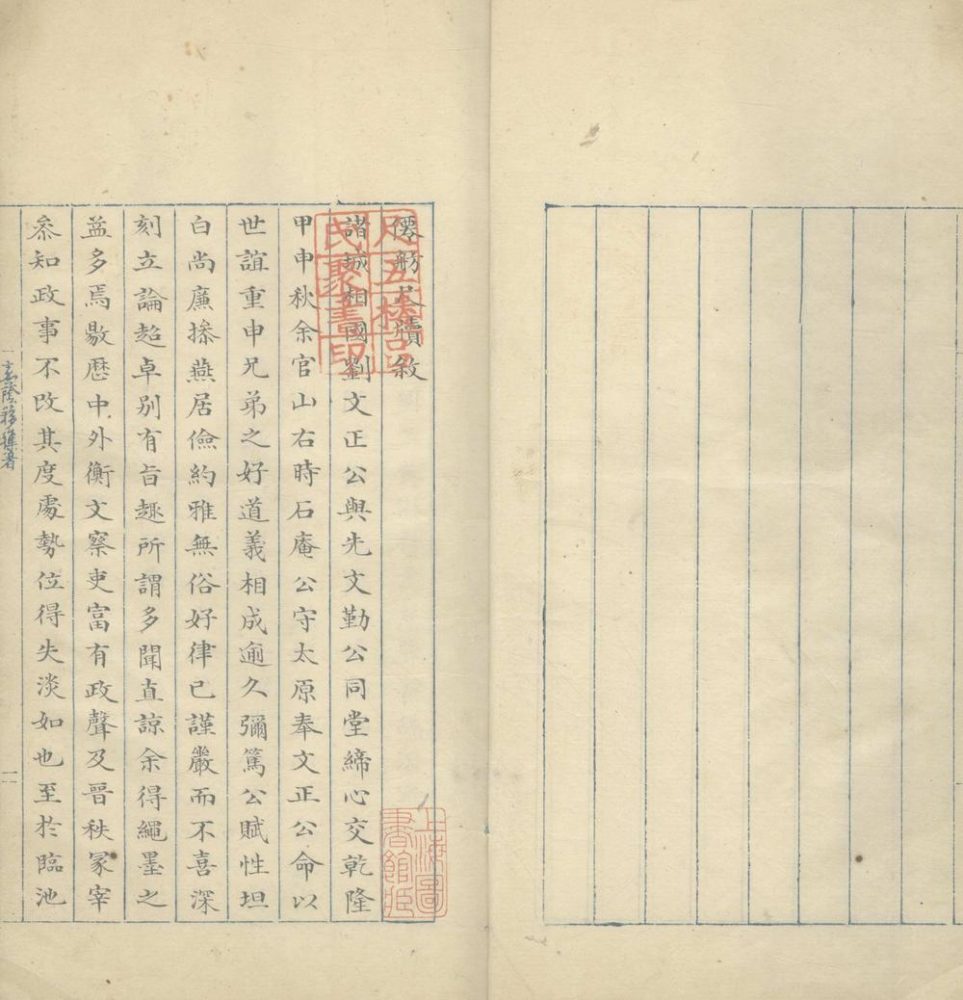 僊舫尺牘敘
諸城相國劉文正公與先文勤公同堂締心交乾隆
甲申秋余官山右時石庵公守太原奉文正公命以
世誼重申兄弟之好道義相成逾久彌篤公賦性坦
白尚廉搽燕居儉約雅無俗好律己謹嚴而不喜深
刻立論超卓別有旨趣所謂多聞直諒余得繩墨之
益多焉敭歷中外衡文察吏富有政聲及晉秩冢宰
叅知政事不改其度處勢位得失淡如也至於臨池
嘉蔭簃集書
上海圖書館藏